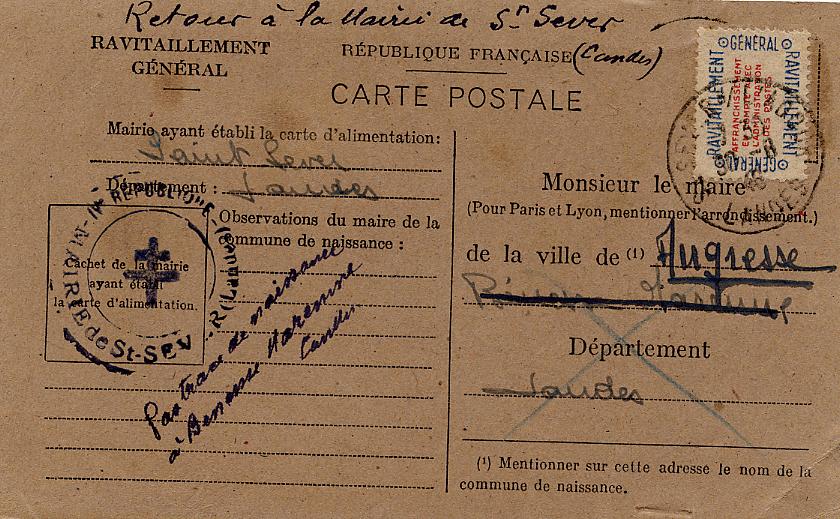 Retour à la Mairie de St Sever
(Landes)
RAVITAILLEMENT
GÉNÉRAL
RÉPUBLIQUE FRANÇAISE
CARTE POSTALE
GÉNÉRAL
RAVITAILLEMENT
AFFRANCHISSEMENT
EN COMPTE AVEC
L'ADMINISTRATION
DES POSTES
RAVITAILLEMENT
GÉNÉRAL
LANDES
Mairie ayant établi la carte d'alimentation:
Saint Sever
Département : Landes
Observations du maire de la
commune de naissance :
Pas trace de naissance
à Benesse Maremne
Landes
MAIRIE de St-SEVER (Landes)
RÉPUBLIQUE
Cachet de la mairie
ayant établi
la carte d'alimentation.
Monsieur le maire
(Pour Paris et Lyon, mentionner l'arrondissement.)
de la ville de (1) Angresse
Département
Landes
(1) Mentionner sur cette adresse le nom de la
commune de naissance.